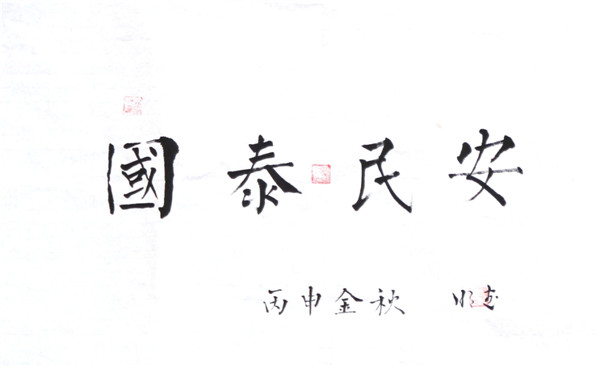 國泰民安
丙申金秋